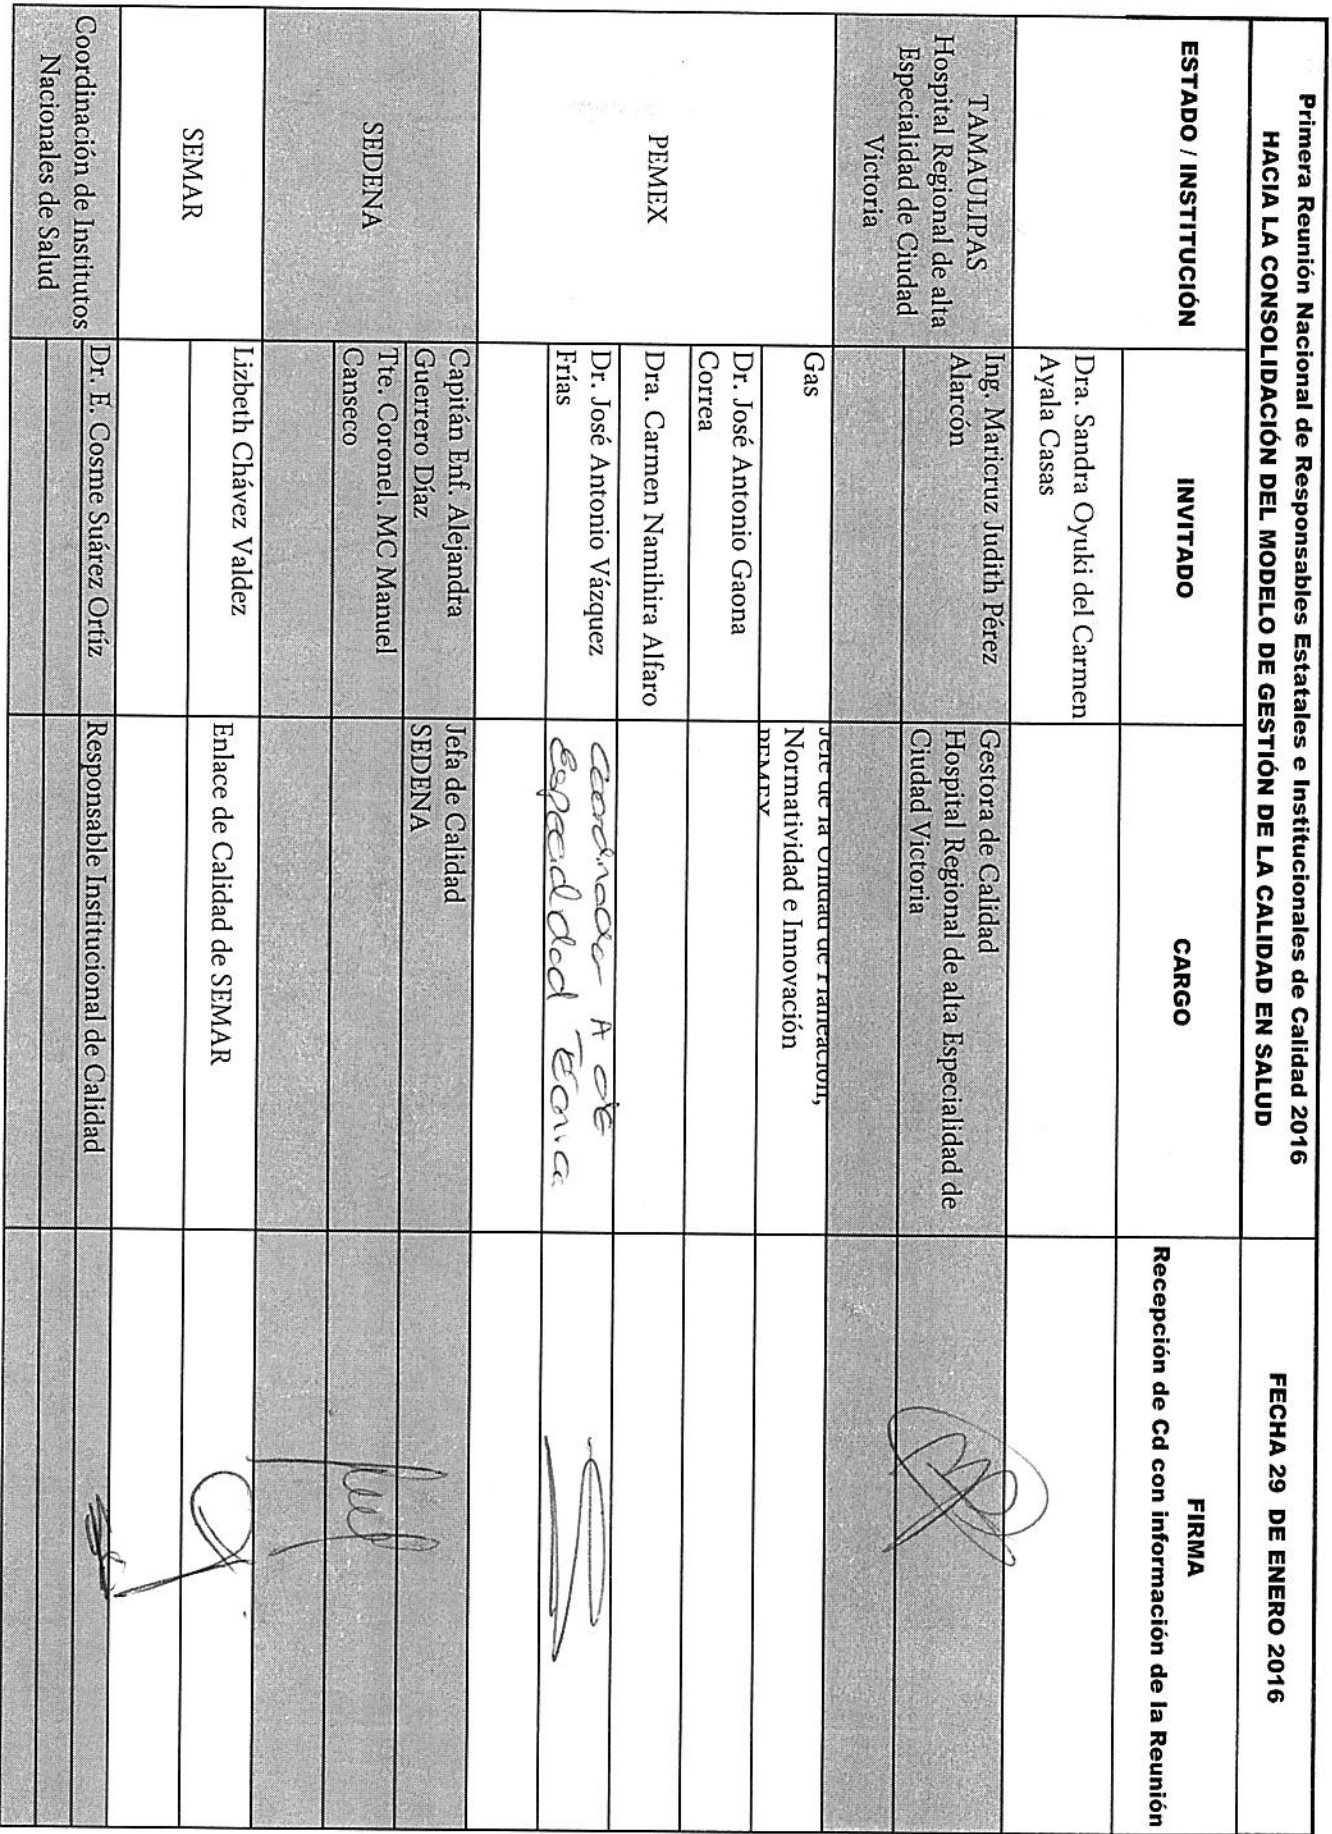 Primera Reunión Nacional de Responsables Estatales e Institucionales de Calidad 2016
HACIA LA CONSOLIDACIÓN DEL MODELO DE GESTIÓN DE LA CALIDAD EN SALUD
FECHA 29 DE ENERO 2016
ESTADO / INSTITUCIÓN
INVITADO
CARGO
FIRMA
Recepción de Cd con información de la Reunión
Dra. Sandra Oyuki del Carmen
Ayala Casas
TAMAULIPAS
Hospital Regional de alta
Especialidad de Ciudad
Victoria
Ing. Maricruz Judith Pérez
Alarcón
Gestora de Calidad
Hospital Regional de alta Especialidad de
Ciudad Victoria
PEMEX
Gas
Jefe de la Unidad de Planeación,
Normatividad e Innovación
PEMEX
Dr. José Antonio Gaona
Correa
Dra. Carmen Namihira Alfaro
Dr. José Antonio Vázquez
Frías
Coordinador A de
Especialidad Técnica
SEDENA
Capitán Enf. Alejandra
Guerrero Díaz
Jefa de Calidad
SEDENA
Tte. Coronel. MC Manuel
Canseco
SEMAR
Lizbeth Chávez Valdez
Enlace de Calidad de SEMAR
Coordinación de Institutos
Nacionales de Salud
Dr. E. Cosme Suárez Ortíz
Responsable Institucional de Calidad